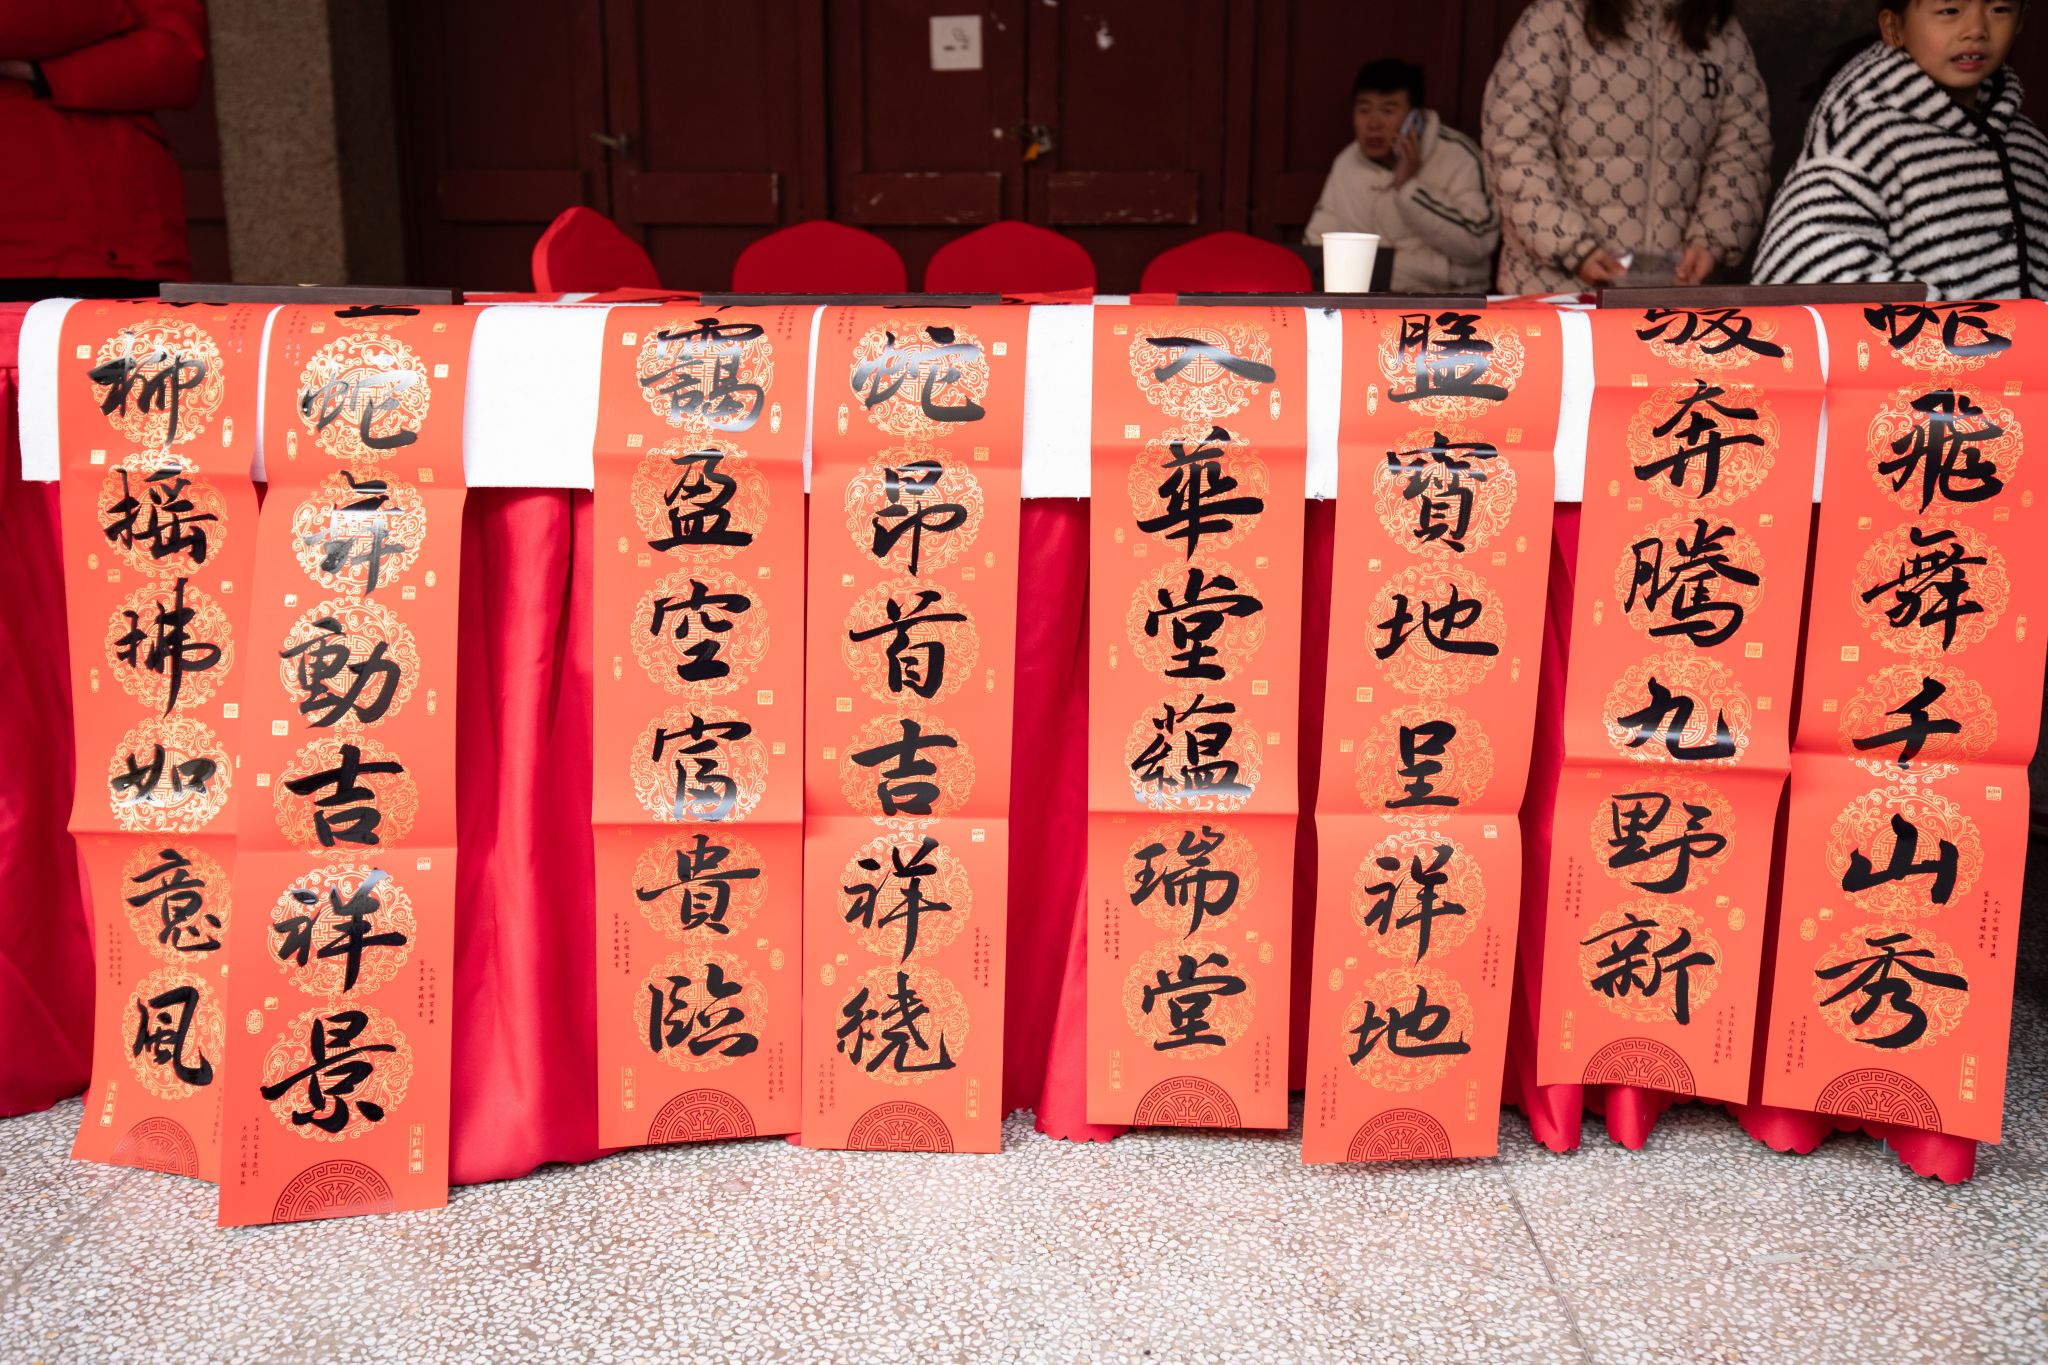 蛇飛舞千山秀
駿奔騰九野新
寶地呈祥地
入華堂蘊瑞堂
蛇昂首吉祥繞
靄盈空富貴臨
蛇舞動吉祥景
柳摇拂如意風